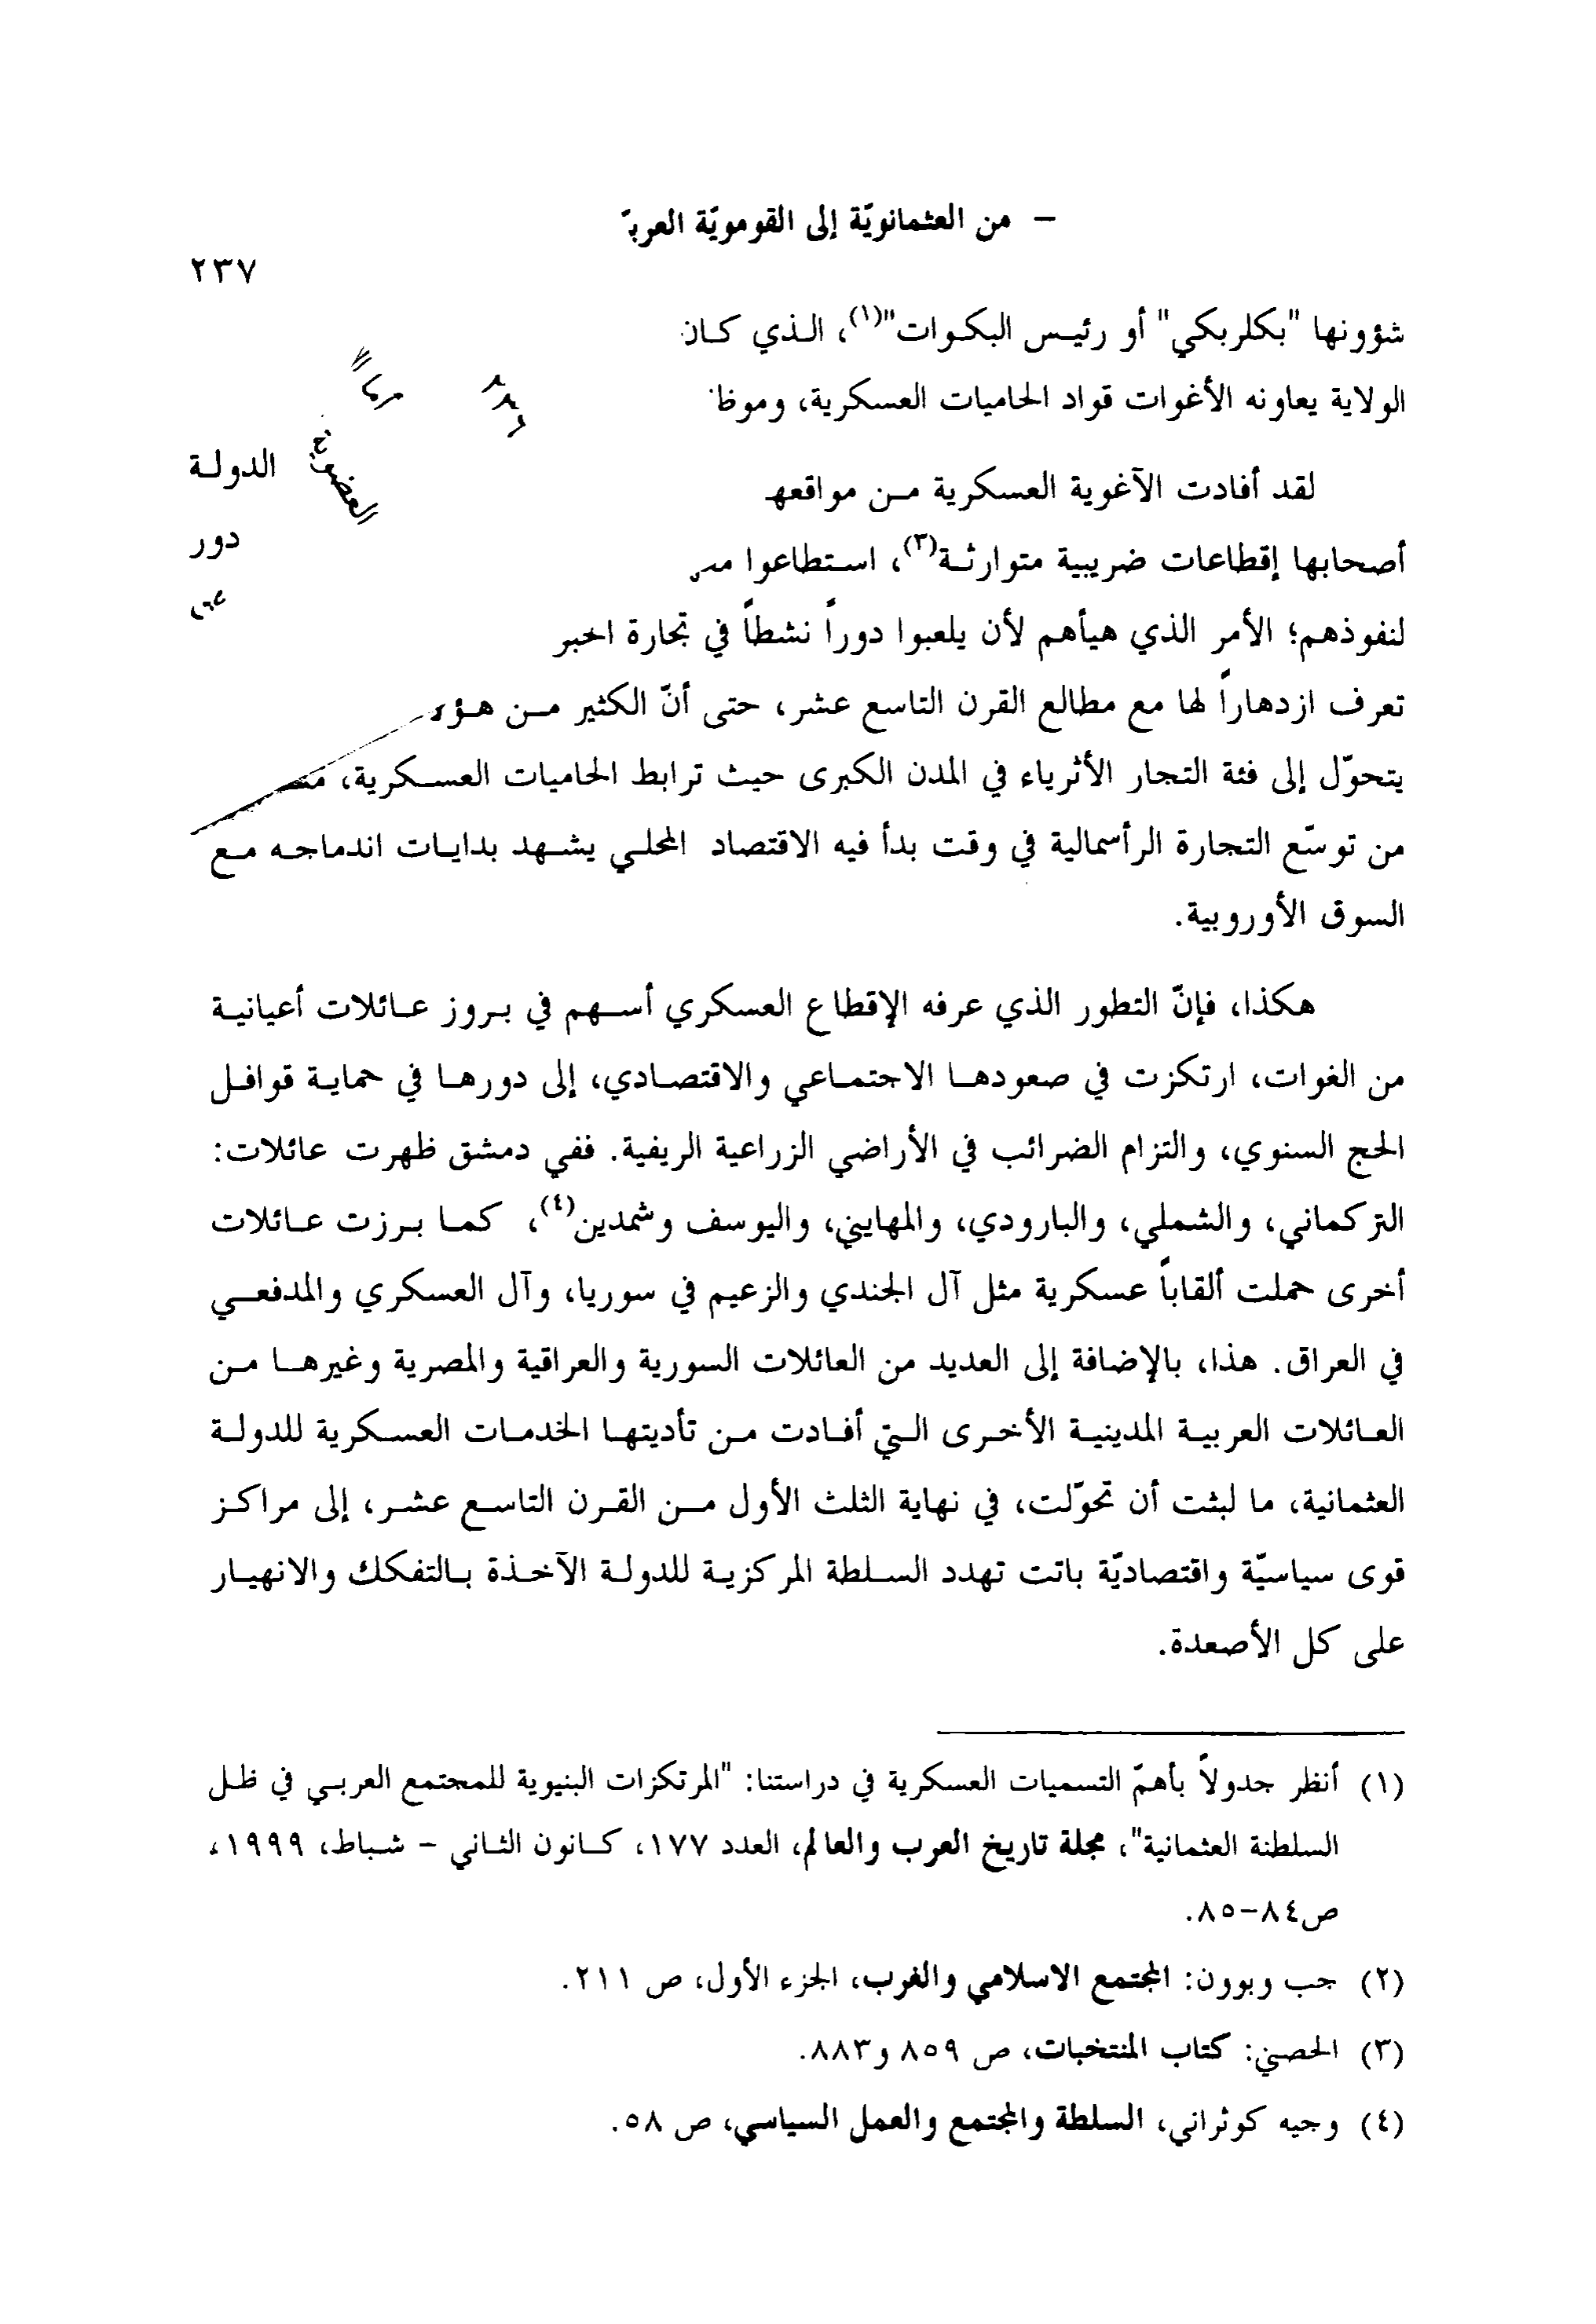 – من العثمانويّة إلى القومويّة
٢٣٧
شؤونها "بكلربكي" أو رئيس البكوات"(١)، الذي كان
الولاية يعاونه الأغوات قواد الحاميات العسكرية،
الدولة
لقد أفادت الآغوية العسكرية من
دور
أصحابها إقطاعات ضريبية متوارثة(٣)، استطاعوا
لنفوذهم؛ الأمر الذي هيأهم لأن يلعبوا دوراً نشطاً في تجارة
تعرف ازدهاراً لها مع مطالع القرن التاسع عشر، حتى أنّ الكثير من
يتحوّل إلى فئة التجار الأثرياء في المدن الكبرى حيث ترابط الحاميات العسكرية،
من توسّع التجارة الرأسمالية في وقت بدأ فيه الاقتصاد المحلي يشهد بدايات اندماجه مع
السوق الأوروبية.
هكذا، فإنّ التطور الذي عرفه الإقطاع العسكري أسهم في بروز عائلات أعيانية
من الغوات، ارتكزت في صعودها الاجتماعي والاقتصادي، إلى دورها في حماية قوافل
الحج السنوي، والتزام الضرائب في الأراضي الزراعية الريفية. ففي دمشق ظهرت عائلات:
التركماني، والشملي، والبارودي، والمهايني، واليوسف وشمدين(٤)، كما برزت عائلات
أخرى حملت ألقاباً عسكرية مثل آل الجندي والزعيم في سوريا، وآل العسكري والمدفعي
في العراق. هذا، بالإضافة إلى العديد من العائلات السورية والعراقية والمصرية وغيرها من
العائلات العربية المدينية الأخرى التي أفادت من تأديتها الخدمات العسكرية للدولة
العثمانية، ما لبثت أن تحوّلت، في نهاية الثلث الأول من القرن التاسع عشر، إلى مراكز
قوى سياسيّة واقتصاديّة باتت تهدد السلطة المركزية للدولة الآخذة بالتفكك والانهيار
على كل الأصعدة.
(١) أنظر جدولاً بأهمّ التسميات العسكرية في دراستنا: "المرتكزات البنيوية للمجتمع العربي في ظل
السلطنة العثمانية"، مجلة تاريخ العرب والعالم، العدد ١٧٧، كانون الثاني – شباط، ١٩٩٩،
ص٨٤-٨٥.
(٢) جب وبوون: المجتمع الاسلامي والغرب، الجزء الأول، ص ٢١١.
(٣) الحصني: كتاب المنتخبات، ص ٨٥٩ و٨٨٣.
(٤) وجيه كوثراني، السلطة والمجتمع والعمل السياسي، ص ٥٨.